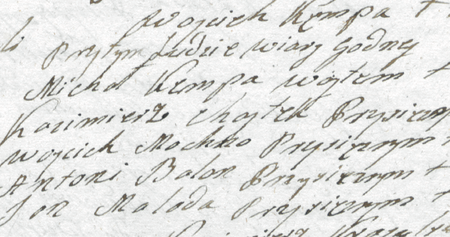 Woyciech Kempa +
li Prytym ludzie wiary godney
Michał Kempa woytem +
Kazimierz Chaytek Prysieznym
woyciech Mochno Prysieznym
Antoni Balon Przysieznym +
Jon Maloda Prysieznym +